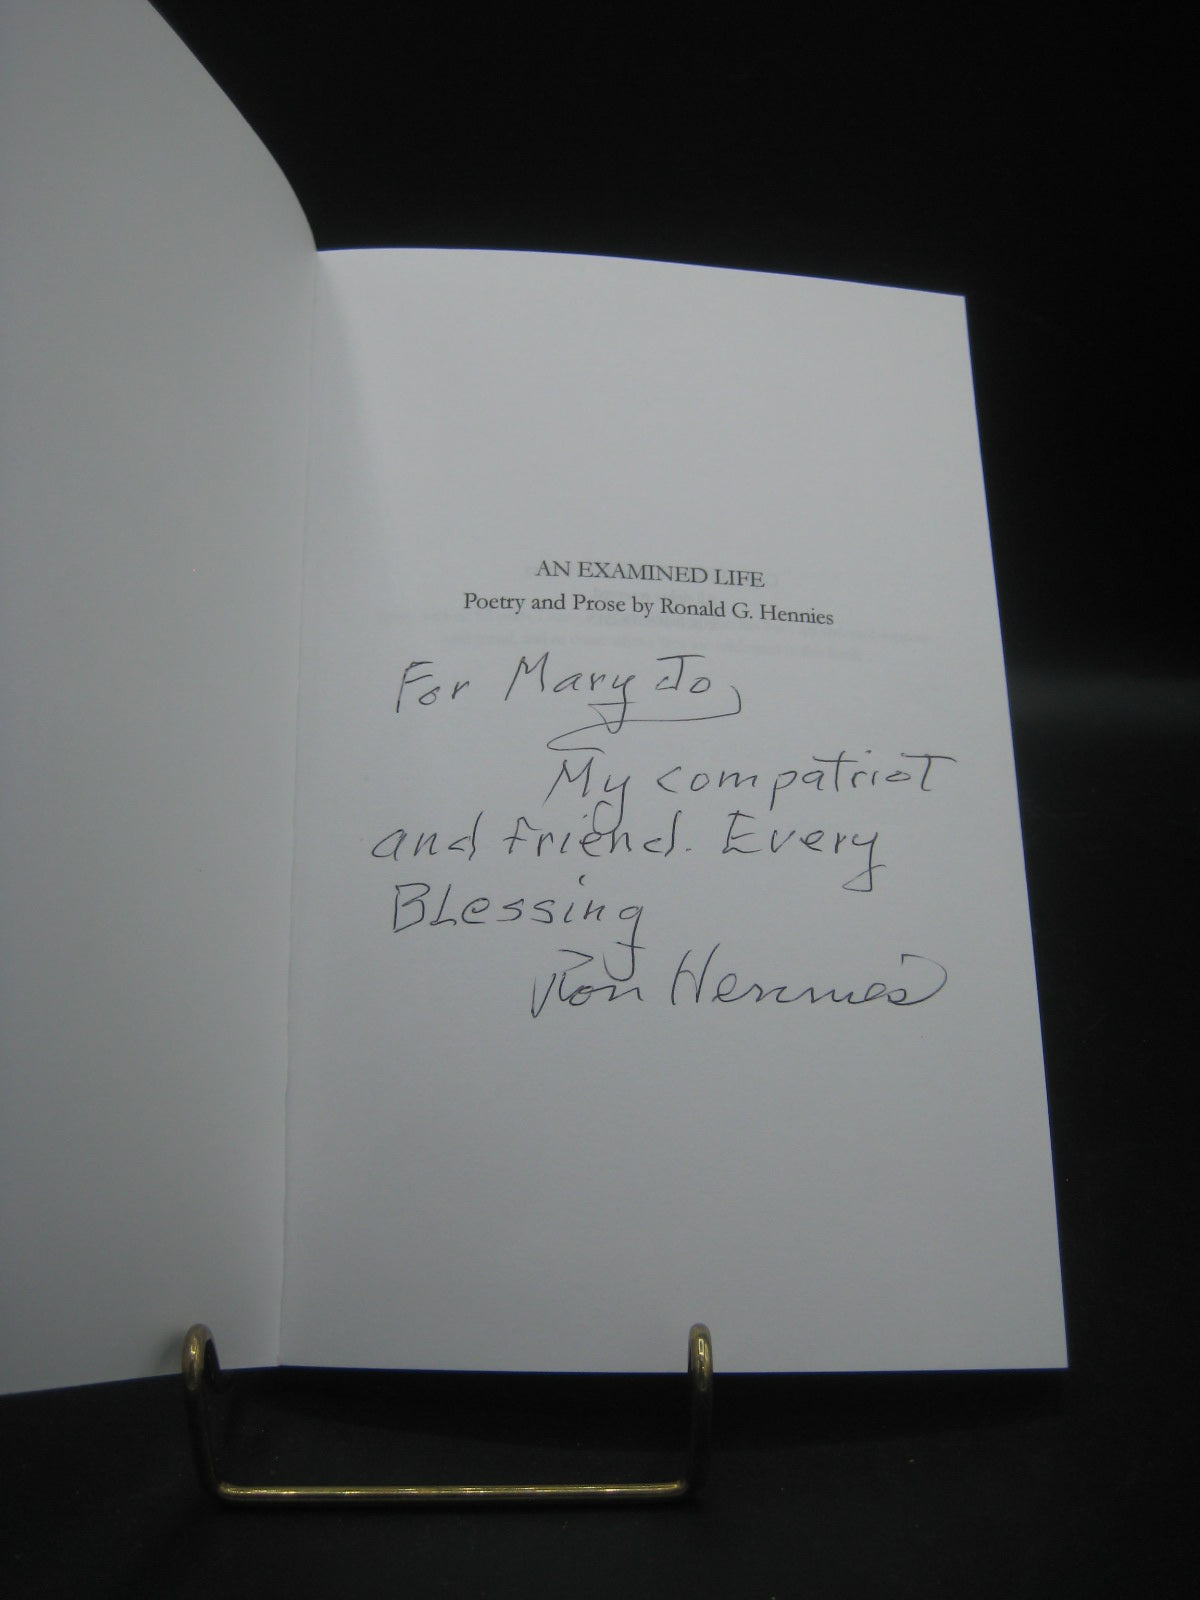 AN EXAMINED LIFE
Poetry and Prose by Ronald G. Hennies
For Mary Jo,
My compatriot
and friend. Every
Blessing
Ron Hennies